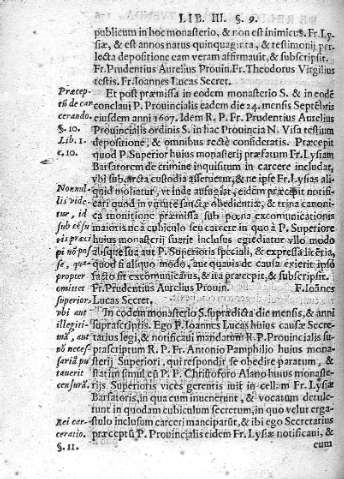 LIB. III. §. 9.
publicum in hoc monasterio, & non est inimicus. Fr. Ly-
siæ, & est annos natus quinquaginta, & testimonij per-
lecta depositione eam veram affirmauit, & subscripsit.
Fr. Prudentius Aurelius Prouin. Fr. Theodorus Virgilius
testis. Fr. Ioannes Lucas Secret.
Præcep-
tũ de car-
cerando.
§. 10.
Lib. 1.
c. 10.
Et post præmissa in eodem monasterio S. & in eodē
conclaui P. Prouincialis eadem die 24. mensis Septēbris
eiusdem anni 1607. Idem R. P. Fr. Prudentius Aurelius
Prouincialis ordinis S. in hac Prouincia N. Visa testium
depositione, & omnibus rectè consideratis. Præcepit
quod P. Superior huius monasterij præfatum Fr. Lysiam
Barsatorem de crimine inquisitum in carcere includat,
vbi sub arcta custodia asseruetur, & ne ipse Fr. Lysias ali-
quid moliatur, vt inde aufugiat, eidem præcepit notifi-
cari quod in virtute sanctæ obedientiæ, & trina canoni-
ca monitione præmissa sub pœna excommunicationis
maioris ne à cubiculo seu carcere in quo à P. Superiore
huius monasterij fuerit inclusus egrediatur vllo modo
absque sua aut P. Superioris speciali, & expressa licētia,
quod si aliquo modo, aut quauis de causa exierit ipso
facto sit excōmunicatus, & ita præcepit, & subscripsit.
Fr. Prudentius Aurelius Prouin. F. Ioannes
Lucas Secret.
Nonnul-
li vide-
tur, id
omittet
superior,
vbi aut
illegiti-
mã, aut
In codem monasterio S. supradicta die mensis, & anni
suprascriptis. Ego P. Ioannes Lucas huius causæ Secre-
tarius legi, & notificaui mandatum R. P. Prouincialis su-
prascriptum R. P. Fr. Antonio Pamphilio huius mona-
sterij Superiori, qui respondit se obedire paratum, &
statim simul cū P. Christoforo Alano huius monaste-
rijs Superioris vices gerentis iuit in cellam Fr. Lysiæ
Barsatoris, in qua eum inuenerunt, & vocatum detule-
runt in quodam cubiculum secretum, in quo velut erga-
stulo inclusum carceri manciparūt, & ibi ego Secretarius
præceptū P. Prouincialis eidem Fr. Lysiæ notificaui, &
Rei car-
ceratio.
§. 11.
cum